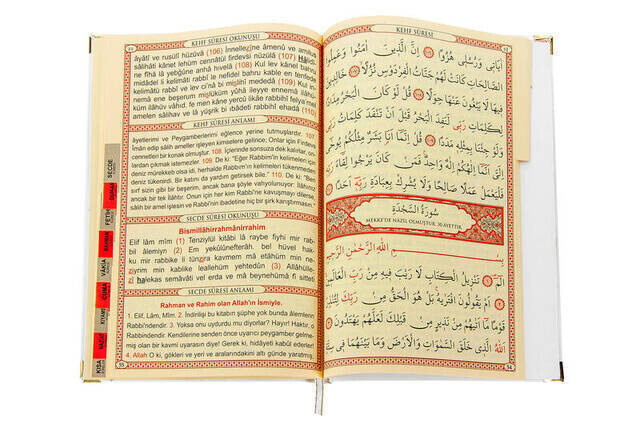 KEHF SÛRESİ OKUNUŞU
âyâtî ve rusulî hüzüvâ (106) İnnellezîne âmenû ve amilus
sâlihâti kânet lehüm cennâtül firdevsi nüzülâ (107) Hâlidî-
ne fîhâ lâ yebğûne anhâ hıvelâ (108) Kul lev kânel bahru
midâdel li kelimâti rabbî le nefidel bahru kable en tenfede
kelimâtü rabbî ve lev ci'nâ bi mislihî mededâ (109) Kul in-
nemâ ene beşerum mislüküm yûhâ ileyye ennemâ ilâhü-
küm ilâhüv vâhıd. fe men kâne yercû likâe rabbihî felya'mel
amelen sâlihav ve lâ yüşrik bi ıbâdeti rabbihî ehadâ (110)
KEHF SÛRESİ ANLAMI
âyetlerimi ve Peygamberlerimi eğlence yerine tutmuşlardır. 107.
İman edip sâlih ameller işleyen kimselere gelince; Onlar için Firdevs
cennetleri bir konak olmuştur. 108. İçlerinde sonsuza dek kalırlar, on-
lardan çıkmak istemezler. 109. De ki: "Eğer Rabbimin kelimeleri için
deniz mürekkep olsa idi, herhalde Rabbimin kelimeleri tükenmeden
deniz tükenirdi. Bir katını da yardım getirsek bile." 110. De ki: "Ben
sırf sizin gibi bir beşerim, ancak bana şöyle vahyolunuyor: İlâhınız
ancak bir tek ilâhtır. Onun için her kim Rabbi'ne kavuşmayı dilerse
sâlih amel işlesin ve Rabbi'nin ibadetine hiç bir şirk karıştırmasın."
SECDE SÛRESİ OKUNUŞU
Bismillâhirrahmânirrahîm
Elif lâm mîm (1) Tenzîlül kitâbi lâ raybe fîyhi mir rab-
bil âlemiyn (2) Em yekûlûnefterâh. bel hüvel hak-
ku mir rabbike li tünzira kavmem mâ etâhüm min ne-
ziyrim min kablike leallehüm yehtedûn (3) Allâhülle-
zî halekas semâvâti vel erda ve mâ beynehümâ fî sitteti
SECDE SÛRESİ ANLAMI
Rahman ve Rahîm olan Allah'ın İsmiyle.
1. Elif, Lâm, Mîm. 2. İndirilişi bu kitabın şüphe yok bunda âlemlerin
Rabbi'ndendir. 3. Yoksa onu uydurdu mu diyorlar? Hayır! Haktır, o
Rabbindendir. Kendilerine senden önce uyarıcı peygamber gelme-
miş olan bir kavmi uyarasın diye! Gerek ki, hidâyeti kabûl ederler!
4. Allah O ki, gökleri ve yeri ve aralarındakini altı günde yaratmış,
55
SECDE
DUHAN
FETİH
RAHMAN
VÂKIA
CUMA
KIYAME
KISA
KEHF SÛRESİ
اٰيَاتِى وَرُسُلِى هُزُوًا ﴿١٠٦﴾ اِنَّ الَّذِينَ اٰمَنُوا وَعَمِلُوا
الصَّالِحَاتِ كَانَتْ لَهُمْ جَنَّاتُ الْفِرْدَوْسِ نُزُلًا ﴿١٠٧﴾ خَالِدِينَ
فِيهَا لَا يَبْغُونَ عَنْهَا حِوَلًا ﴿١٠٨﴾ قُلْ لَوْ كَانَ الْبَحْرُ مِدَادًا
لِكَلِمَاتِ رَبِّى لَنَفِدَ الْبَحْرُ قَبْلَ اَنْ تَنْفَدَ كَلِمَاتُ رَبِّى
وَلَوْ جِئْنَا بِمِثْلِهِ مَدَدًا ﴿١٠٩﴾ قُلْ اِنَّمَا اَنَا بَشَرٌ مِثْلُكُمْ يُوحٰى
اِلَىَّ اَنَّمَا اِلٰهُكُمْ اِلٰهٌ وَاحِدٌ فَمَنْ كَانَ يَرْجُوا لِقَاءَ رَبِّهِ
فَلْيَعْمَلْ عَمَلًا صَالِحًا وَلَا يُشْرِكْ بِعِبَادَةِ رَبِّهِ اَحَدًا ﴿١١٠﴾
سُورَةُ السَّجْدَةِ
MEKKE'DE NAZİL OLMUŞTUR. 30 AYETTİR.
بِسْمِ اللّٰهِ الرَّحْمٰنِ الرَّحِيمِ
الٓمٓ ﴿١﴾ تَنْزِيلُ الْكِتَابِ لَا رَيْبَ فِيهِ مِنْ رَبِّ الْعَالَمِينَ ﴿٢﴾
اَمْ يَقُولُونَ افْتَرٰيهُ بَلْ هُوَ الْحَقُّ مِنْ رَبِّكَ لِتُنْذِرَ
قَوْمًا مَا اَتٰيهُمْ مِنْ نَذِيرٍ مِنْ قَبْلِكَ لَعَلَّهُمْ يَهْتَدُونَ ﴿٣﴾
اَللّٰهُ الَّذِى خَلَقَ السَّمٰوَاتِ وَالْاَرْضَ وَمَا بَيْنَهُمَا فِى
54